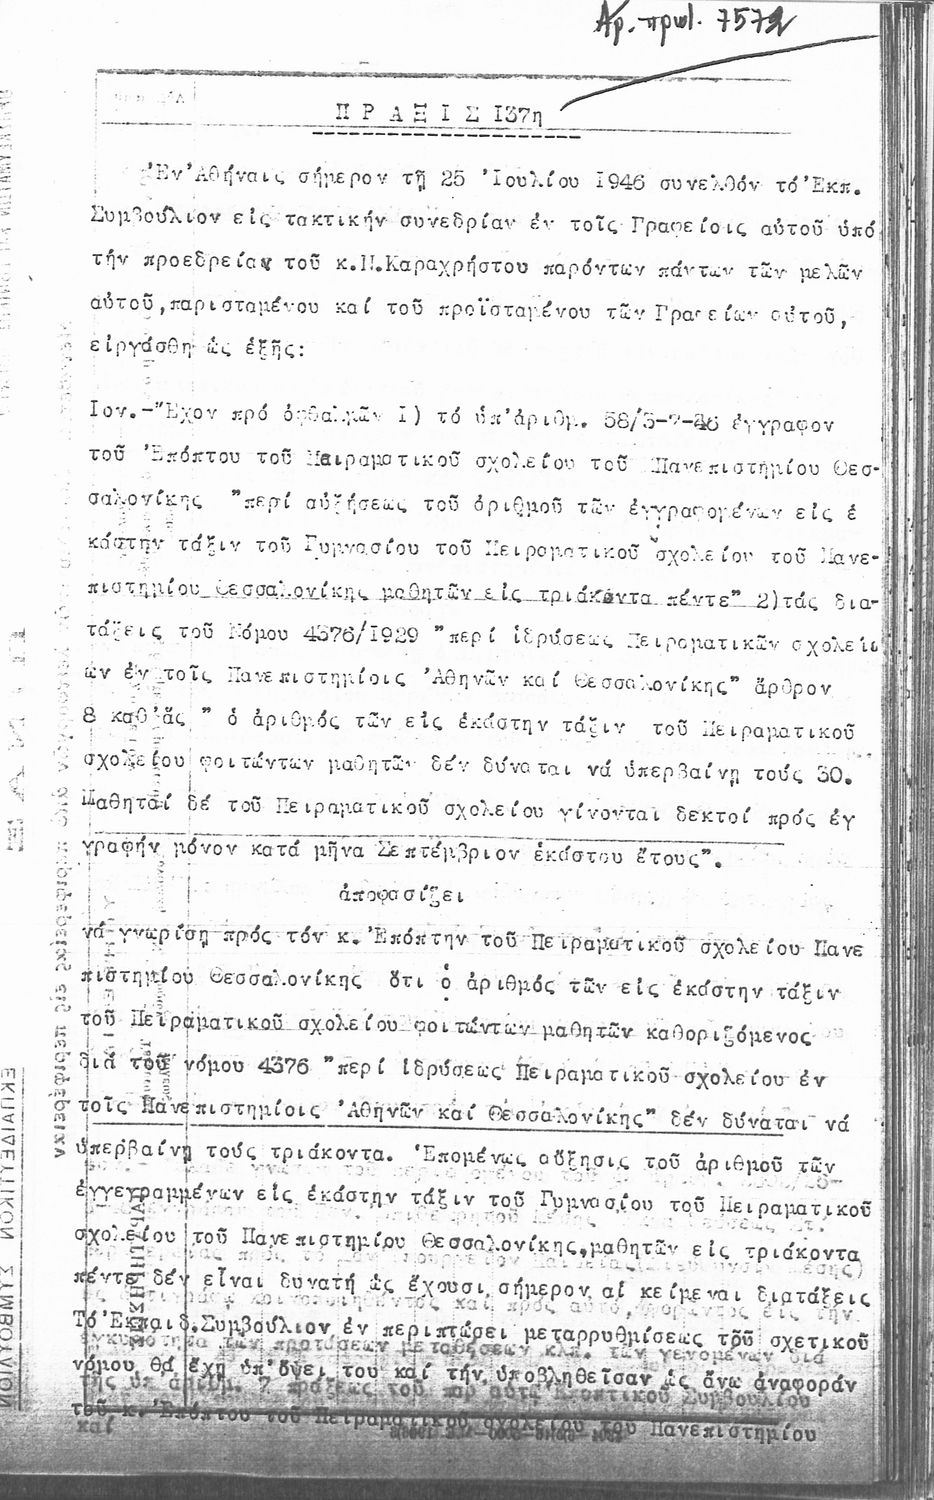 Αρ. πρωτ. 7572
Π Ρ Α Ξ Ι Σ Ι37η
Ἐν Ἀθήναις σήμερον τῇ 25 Ἰουλίου Ι946 συνελθόν τό Ἐκπ.
Συμβούλιον εἰς τακτικήν συνεδρίαν ἐν τοῖς Γραφείοις αὐτοῦ ὑπό
τήν προεδρείαν τοῦ κ.Ν.Καραχρήστου παρόντων πάντων τῶν μελῶν
αὐτοῦ,παρισταμένου καί τοῦ προϊσταμένου τῶν Γραφείων αὐτοῦ,
εἰργάσθη ὡς ἑξῆς:
Ιον.-"Ἔχον πρό ὀφθαλμῶν Ι) τό ὑπ'ἀριθμ. 58/5-7-46 ἔγγραφον
τοῦ Ἐπόπτου τοῦ Πειραματικοῦ σχολείου τοῦ Πανεπιστημίου Θεσ-
σαλονίκης "περί αὐξήσεως τοῦ ἀριθμοῦ τῶν ἐγγραφομένων εἰς ἑ
κάστην τάξιν τοῦ Γυμνασίου τοῦ Πειραματικοῦ σχολείου τοῦ Πανε-
πιστημίου Θεσσαλονίκης μαθητῶν εἰς τριάκοντα πέντε" 2)τάς δια-
τάξεις τοῦ Νόμου 4376/Ι929 "περί ἱδρύσεως Πειραματικῶν σχολείω
ων ἐν τοῖς Πανεπιστημίοις Ἀθηνῶν καί Θεσσαλονίκης" ἄρθρον
8 καθ'ἅς " ὁ ἀριθμός τῶν εἰς ἑκάστην τάξιν τοῦ Πειραματικοῦ
σχολείου φοιτώντων μαθητῶν δέν δύναται νά ὑπερβαίνῃ τούς 30.
Μαθηταί δέ τοῦ Πειραματικοῦ σχολείου γίνονται δεκτοί πρός ἐγ
γραφήν μόνον κατά μῆνα Σεπτέμβριον ἑκάστου ἔτους".
ἀποφασίζει
νά γνωρίσῃ πρός τόν κ. Ἐπόπτην τοῦ Πειραματικοῦ σχολείου Πανε
πιστημίου Θεσσαλονίκης ὅτι ὁ ἀριθμός τῶν εἰς ἑκάστην τάξιν
τοῦ Πειραματικοῦ σχολείου φοιτώντων μαθητῶν καθοριζόμενος
διά τοῦ νόμου 4376 "περί ἱδρύσεως Πειραματικοῦ σχολείου ἐν
τοῖς Πανεπιστημίοις Ἀθηνῶν καί Θεσσαλονίκης" δέν δύναται νά
ὑπερβαίνῃ τούς τριάκοντα. Ἑπομένως αὔξησις τοῦ ἀριθμοῦ τῶν
ἐγγεγραμμένων εἰς ἑκάστην τάξιν τοῦ Γυμνασίου τοῦ Πειραματικοῦ
σχολείου τοῦ Πανεπιστημίου Θεσσαλονίκης,μαθητῶν εἰς τριάκοντα
πέντε δέν εἶναι δυνατή ὡς ἔχουσι σήμερον αἱ κείμεναι διατάξεις
Τό Ἐκπαιδ.Συμβούλιον ἐν περιπτώσει μεταρρυθμίσεως τοῦ σχετικοῦ
νόμου θά ἔχῃ ὑπ'ὄψει του καί τήν ὑποβληθεῖσαν ὡς ἄνω ἀναφοράν
τοῦ κ. Ἐπόπτου τοῦ Πειραματικοῦ σχολείου τοῦ Πανεπιστημίου
ΕΚΠΑΙΔΕΥΤΙΚΟΝ ΣΥΜΒΟΥΛΙΟΝ